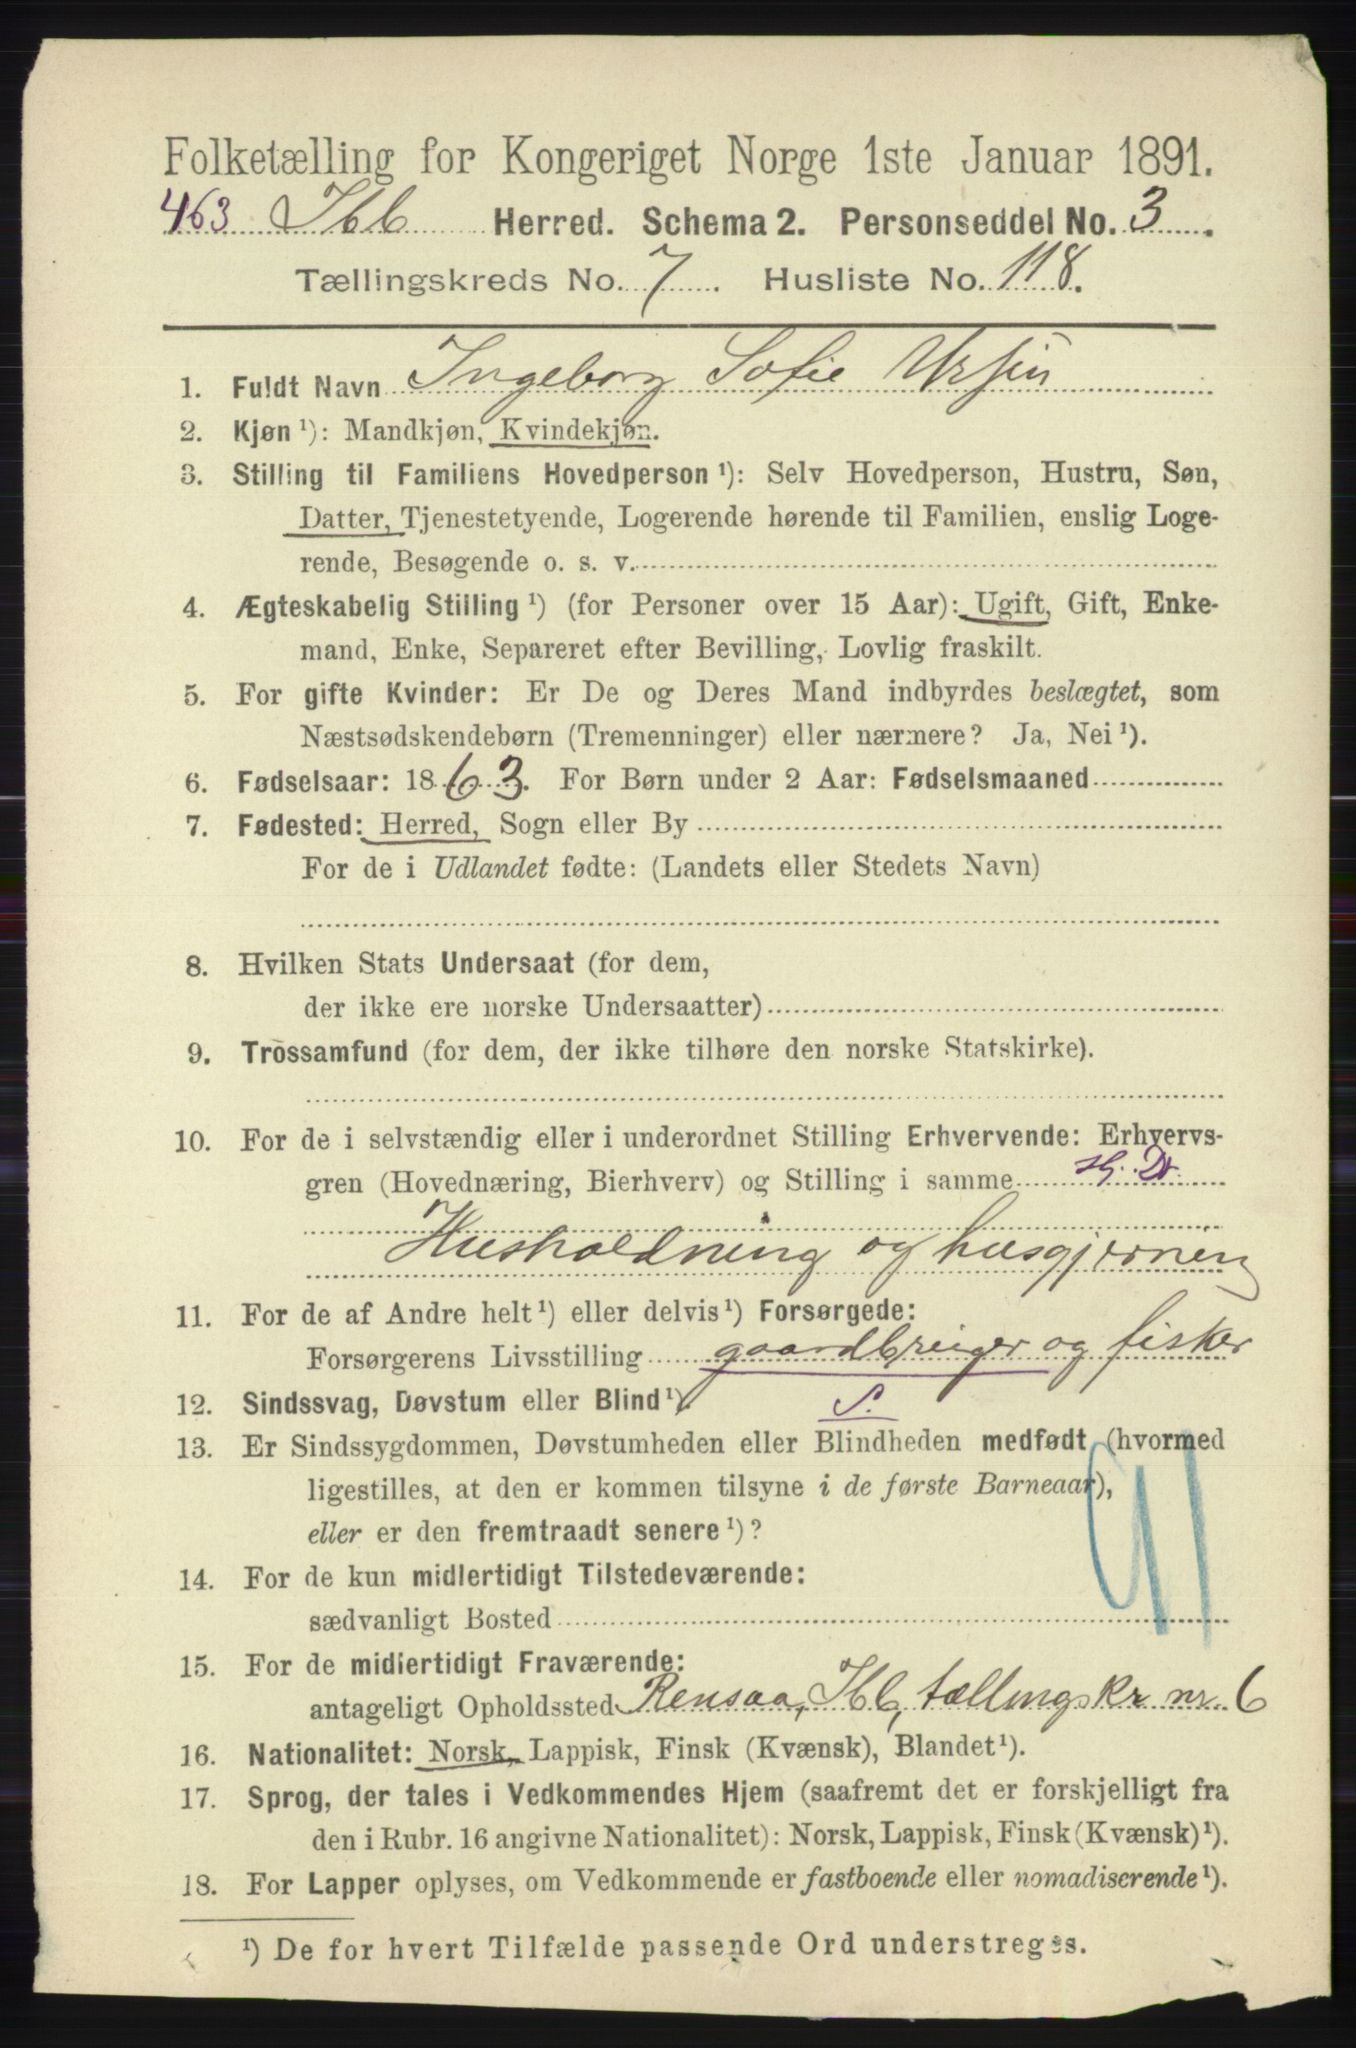 Folketælling for Kongeriget Norge 1ste Januar 1891.
463 Ibb Herred. Schema 2. Personseddel No. 3.
Tællingskreds No. 7. Husliste No. 118.
1. Fuldt Navn Ingeborg Sofie Ursin
2. Kjøn ¹): Mandkjøn, Kvindekjøn.
3. Stilling til Familiens Hovedperson ¹): Selv Hovedperson, Hustru, Søn,
Datter, Tjenestetyende, Logerende hørende til Familien, enslig Loge-
rende, Besøgende o. s. v.
4. Ægteskabelig Stilling ¹) (for Personer over 15 Aar): Ugift, Gift, Enke-
mand, Enke, Separeret efter Bevilling, Lovlig fraskilt.
5. For gifte Kvinder: Er De og Deres Mand indbyrdes beslægtet, som
Næstsødskendebørn (Tremenninger) eller nærmere? Ja, Nei ¹).
6. Fødselsaar: 1863. For Børn under 2 Aar: Fødselsmaaned
7. Fødested: Herred, Sogn eller By
For de i Udlandet fødte: (Landets eller Stedets Navn)
8. Hvilken Stats Undersaat (for dem,
der ikke ere norske Undersaatter)
9. Trossamfund (for dem, der ikke tilhøre den norske Statskirke).
10. For de i selvstændig eller i underordnet Stilling Erhvervende: Erhvervs-
gren (Hovednæring, Bierhverv) og Stilling i samme
Husholdning og husgjerning
11. For de af Andre helt ¹) eller delvis ¹) Forsørgede:
Forsørgerens Livsstilling gaardbruger og fisker
12. Sindssvag, Døvstum eller Blind ¹) S.
13. Er Sindssygdommen, Døvstumheden eller Blindheden medfødt (hvormed
ligestilles, at den er kommen tilsyne i de første Barneaar),
eller er den fremtraadt senere ¹)?
91
14. For de kun midlertidigt Tilstedeværende:
sædvanligt Bosted
15. For de midlertidigt Fraværende:
antageligt Opholdssted Rensaa, Ibb, tællingskr nr. 6
16. Nationalitet: Norsk, Lappisk, Finsk (Kvænsk), Blandet ¹).
17. Sprog, der tales i Vedkommendes Hjem (saafremt det er forskjelligt fra
den i Rubr. 16 angivne Nationalitet): Norsk, Lappisk, Finsk (Kvænsk) ¹).
18. For Lapper oplyses, om Vedkommende er fastboende eller nomadiserende ¹).
¹) De for hvert Tilfælde passende Ord understreges.